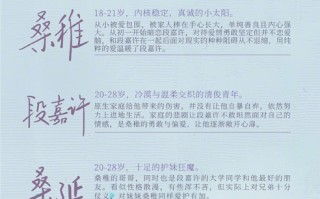 桑稚
18-21岁，内核稳定、真诚的小太阳。
从小被爱包围，被家人捧在手心长大，单纯善良且内心强
大。从初一开始暗恋段嘉许，对待爱情勇敢坚定但并不恋爱
脑，和段嘉许在一起后面对现实的种种阻碍从不退缩，用纯
粹的爱温暖了段嘉许。
段嘉许
20-28岁，冷漠与温柔交织的清俊青年。
原生家庭给他带来的伤害，并没有让他自暴自弃，依然努
力上进地生活。家庭的悲剧让段嘉许不敢坦然面对自己的
情感，是桑稚的勇敢与偏爱，让他逐渐敞开心扉。
桑延
20-28岁，十足的护妹狂魔。
桑稚的哥哥，同时也是段嘉许的大学同学和他最好的朋
友。看似性格散漫，有些浑不吝，但实际上对兄弟十分
仗义，对妹妹桑稚同样爱护有加。